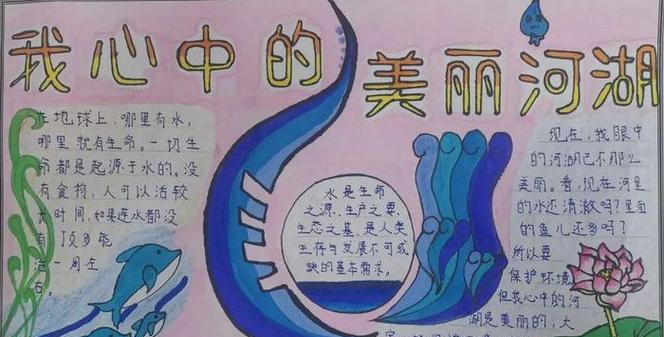 我心中的
美丽河湖
在地球上,哪里有水,
哪里就有生命。一切生
命都是起源于水的。没
有食物,人可以活较
长时间,如果连水都没
有,顶多能
活一周左
右。
水是生命
之源、生产之要、
生态之基,是人类
生存与发展不可或
缺的基本需求。
现在,我眼中
的河湖已不那么
美丽。看,现在河里
的水还清澈吗?里面
的鱼儿还多吗?
所以要
保护环境,
但我心中的河
湖是美丽的,大